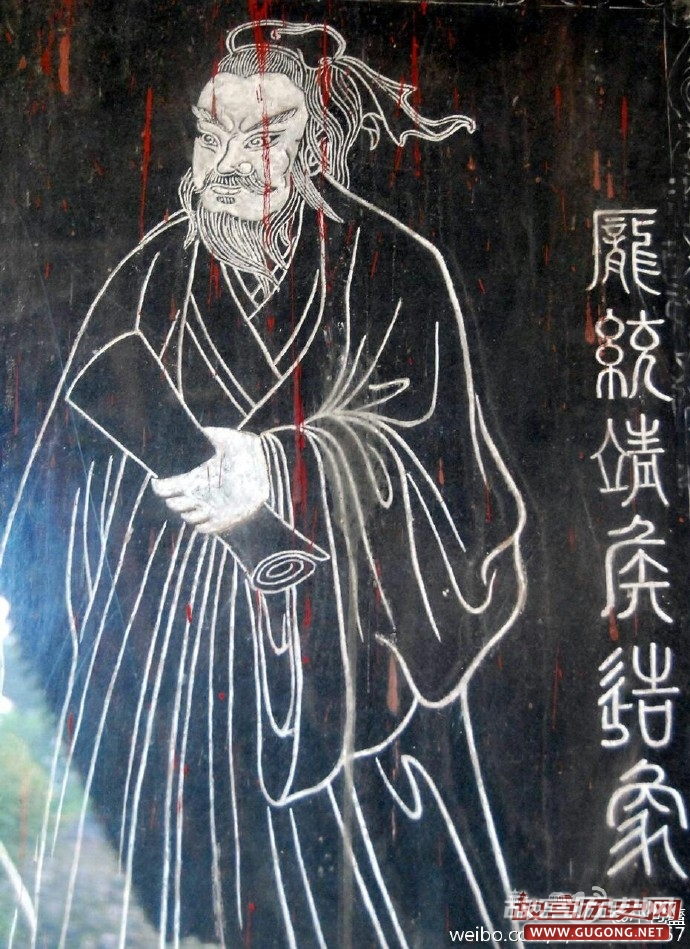 龐統靖侯造象
故宫历史网
WWW.GUGONG.NET
weibo.com/